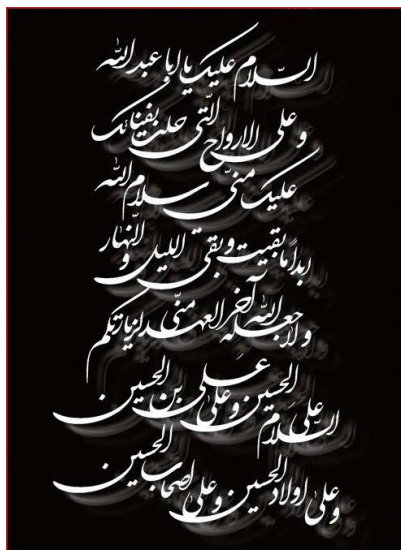 السّلام علیک یا ابا عبدالله
و علی الارواح الّتی حلت بفنائک
علیک منّی سلام الله
ابداً ما بقیت و بقی اللیل و النّهار
و لا جعله الله آخر العهد منّی لزیارتکم
السّلام علی الحسین و علی علی بن الحسین
و علی اولاد الحسین و علی اصحاب الحسین